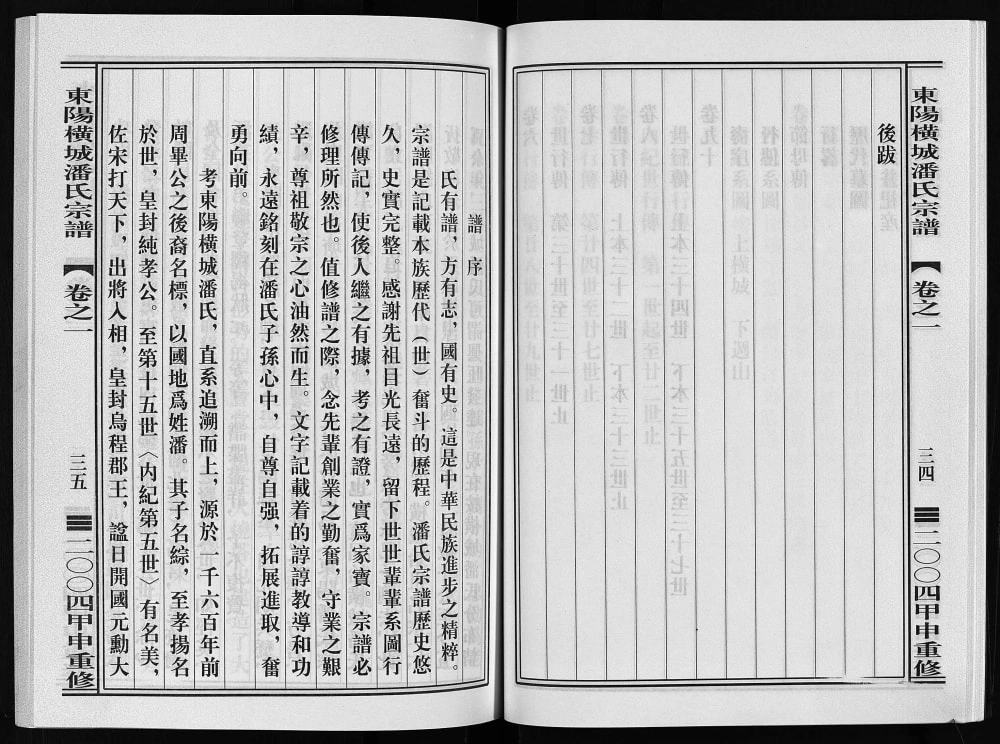 東陽橫城潘氏宗譜
【
卷之一
三四
二〇〇四甲申重修
後跋
譜序
氏有譜，方有志，國有史。這是中華民族進步之精粹。
宗譜是記載本族歷代（世）奮斗的歷程。潘氏宗譜歷史悠
久，史實完整。感謝先祖目光長遠，留下世世輩輩系圖行
傳傳記，使後人繼之有據，考之有證，實爲家寶。宗譜必
修理所然也。值修譜之際，念先輩創業之勤奮，守業之艱
辛，尊祖敬宗之心油然而生。文字記載着的諄諄教導和功
績，永遠銘刻在潘氏子孫心中，自尊自强，拓展進取，奮
勇向前。
考東陽橫城潘氏，直系追溯而上，源於一千六百年前
周畢公之後裔名標，以國地爲姓潘。其子名綜，至孝揚名
於世，皇封純孝公。至第十五世〈内紀第五世〉有名美，
佐宋打天下，出將入相，皇封烏程郡王，諡日開國元勳大
東陽橫城潘氏宗譜
【
卷之一
三五
二〇〇四甲申重修